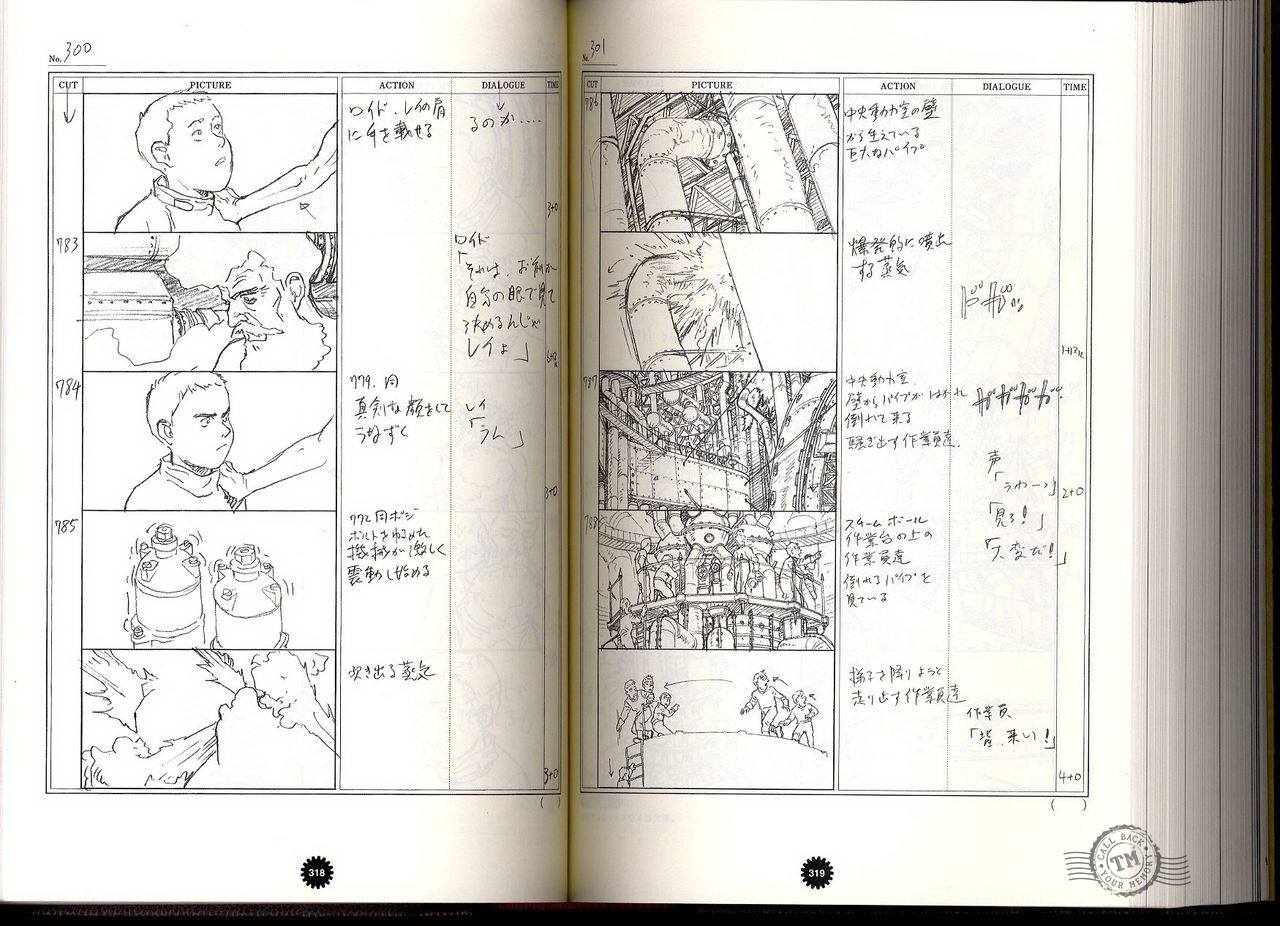 No. 300
CUT PICTURE ACTION DIALOGUE TIME
ロイド、レイの肩
に手を載せる
るのか....
3+0
783
ロイド
「それは、お前が
自分の眼で見て
決めるんじゃ
レイよ」
784
779. 同
真剣な顔をして
うなずく
レイ
「うん」
3+0
785
772同ポジ
ボルトをゆるめた
機械が激しく
震動し始める
吹き出る蒸気
3+0
( )
318
No. 301
CUT PICTURE ACTION DIALOGUE TIME
786
中央動力室の壁
から生えている
巨大なパイプ
爆発的に噴出
する蒸気
787
中央動力室
壁からパイプがはがれ
倒れて来る
騒ぎ出す作業員達.
声
「うわーっ」
「見ろ!」
「大変だ!」
2+0
788
スチームボール
作業台の上の
作業員達
倒れるパイプを
見ている
梯子を降りようと
走り出す作業員達
作業員
「皆、来い!」
4+0
( )
319
CALL BACK
TM
YOUR MEMORY